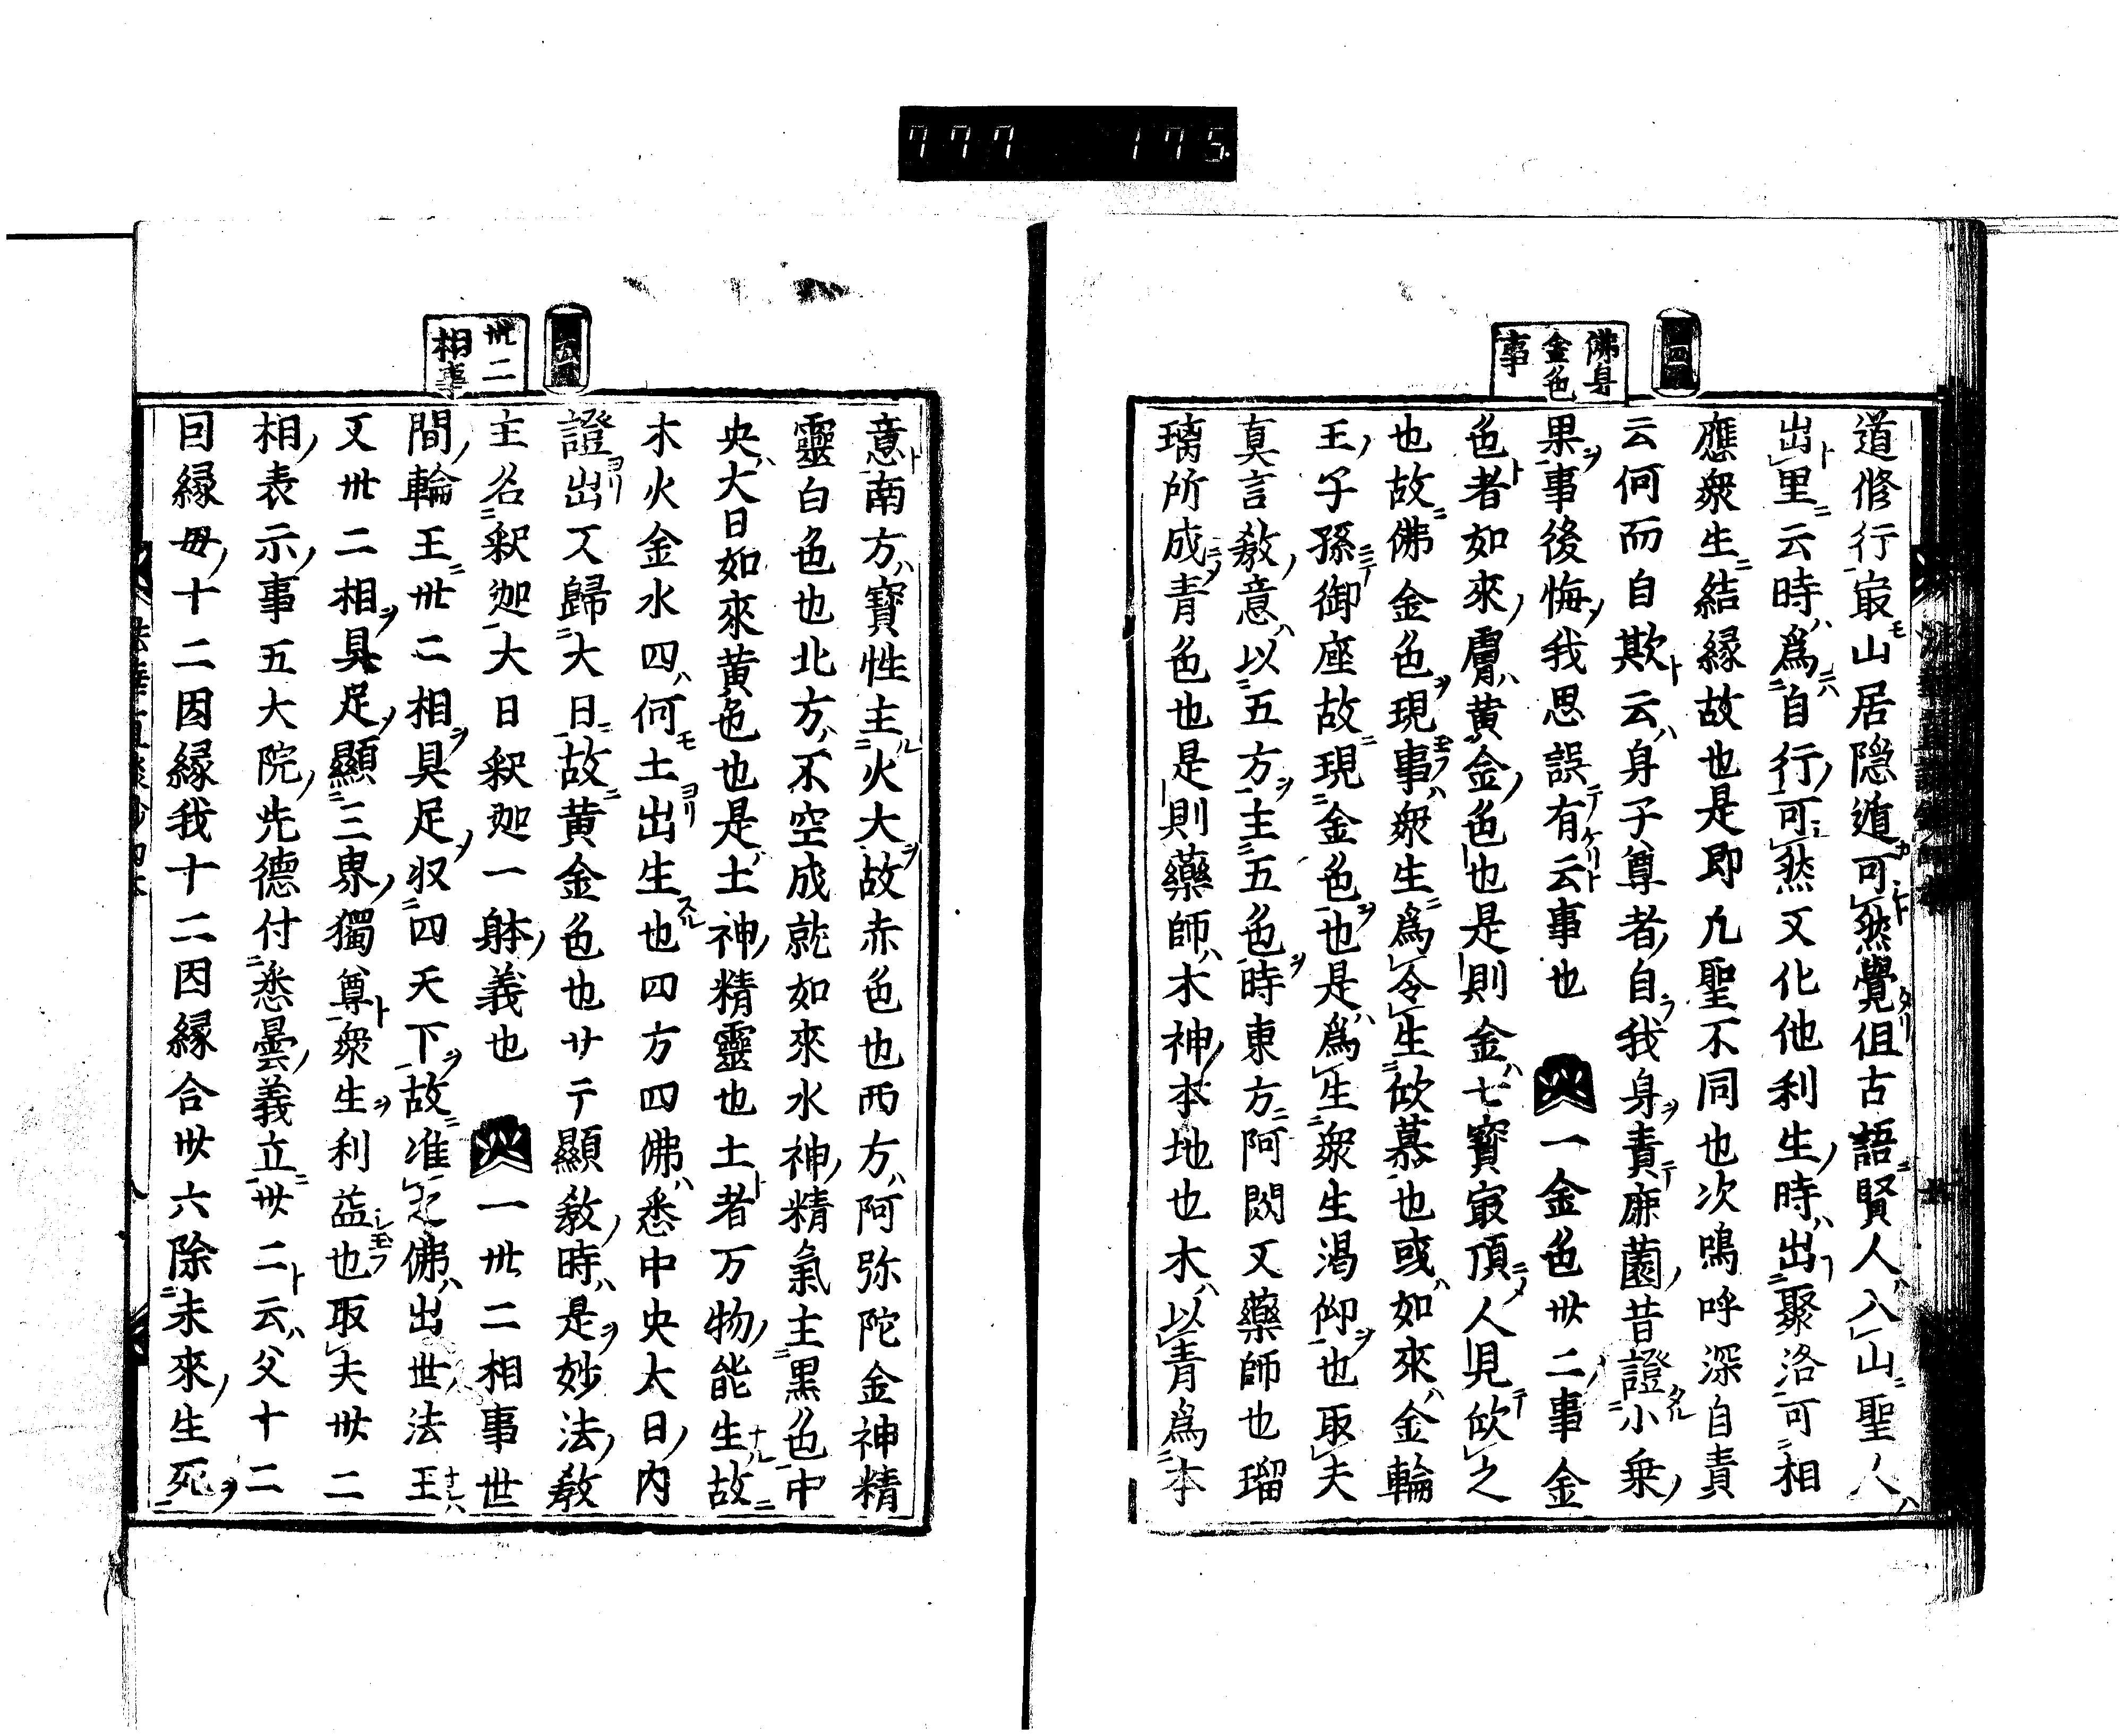 777 175
佛身
金色
事
道修行最山居隠遁可然覺但古語賢人入山聖人
出里云時爲自行可然又化他利生時出聚洛可相
應衆生結縁故也是即凡聖不同也次嗚呼深自責
云何而自欺云身子尊者自我身責鹿薗昔證小乗
果事後悔我思誤有云事也 一金色卅二事金
色者如來膚黄金色也是則金七寶最頂人見欣之
也故佛金色現事衆生爲令生欣慕也或如來金輪
王子孫御座故現金色也是爲生衆生渇仰也取夫
真言教意以五方主五色時東方阿閦又藥師也瑠
璃所成青色也是則藥師木神本地也木以青爲本
五
卅二
相事
意南方寶性主火大故赤色也西方阿弥陀金神精
靈白色也北方不空成就如來水神精氣主黒色中
央大日如來黄色也是土神精靈也土者万物能生故
木火金水四何土出生也四方四佛悉中央大日内
證出又歸大日故黄金色也サテ顯教時是妙法教
主名釈迦大日釈迦一躰義也 一卅二相事世
間輪王卅二相具足収四天下故准之佛出世法王
又卅二相具足顯三界獨尊衆生利益也取夫卅二
相表示事五大院先德付悉曇義立卅二云父十二
因縁母十二因縁我十二因縁合卅六除未來生死